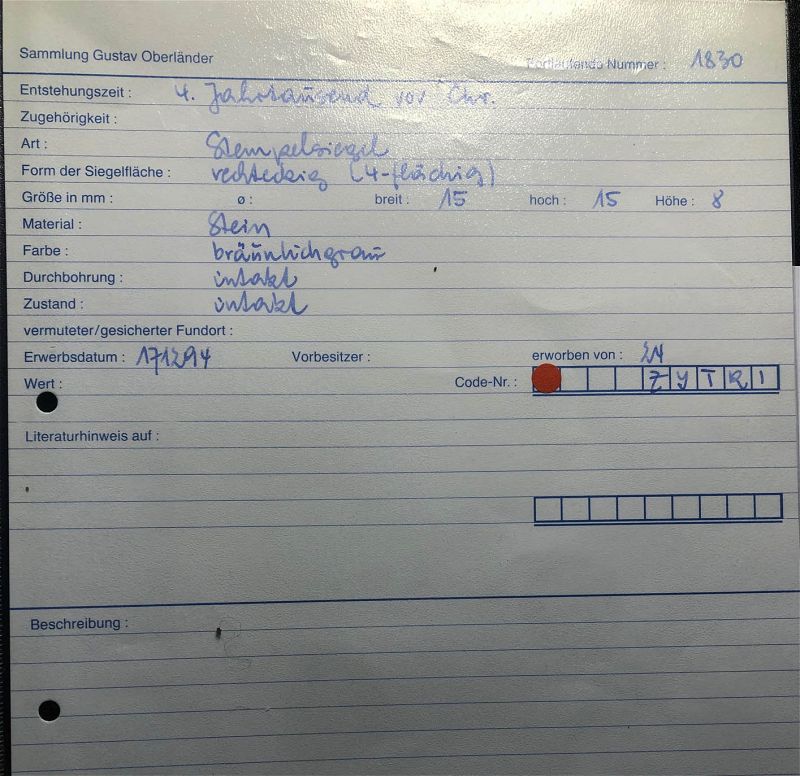 Sammlung Gustav Oberländer
Fortlaufende Nummer : 1830
Entstehungszeit : 4. Jahrtausend vor Chr.
Zugehörigkeit :
Art : Stempelsiegel
Form der Siegelfläche : rechteckig (4-flächig)
Größe in mm : ø : breit : 15 hoch : 15 Höhe : 8
Material : Stein
Farbe : bräunlichgrau
Durchbohrung : intakt
Zustand : intakt
vermuteter/gesicherter Fundort :
Erwerbsdatum : 171294 Vorbesitzer : erworben von :
Wert : Code-Nr. : ZYTRI
Literaturhinweis auf :
Beschreibung :